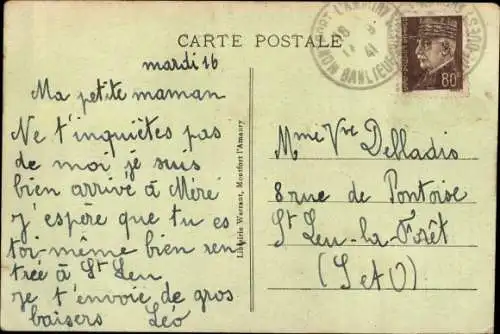 CARTE POSTALE
mardi 16
Ma petite maman
Ne t'inquiètes pas
de moi, je suis
bien arrivé à Méré
J'espère que tu es
toi-même bien ren
trée à St Leu
Je t'envoie de gros
baisers Léo
Librairie Warrant, Montfort l'Amaury
Mme Vve Delladis
8 rue de Pontoise
St Leu-la-Forêt
(S et O)
80
41